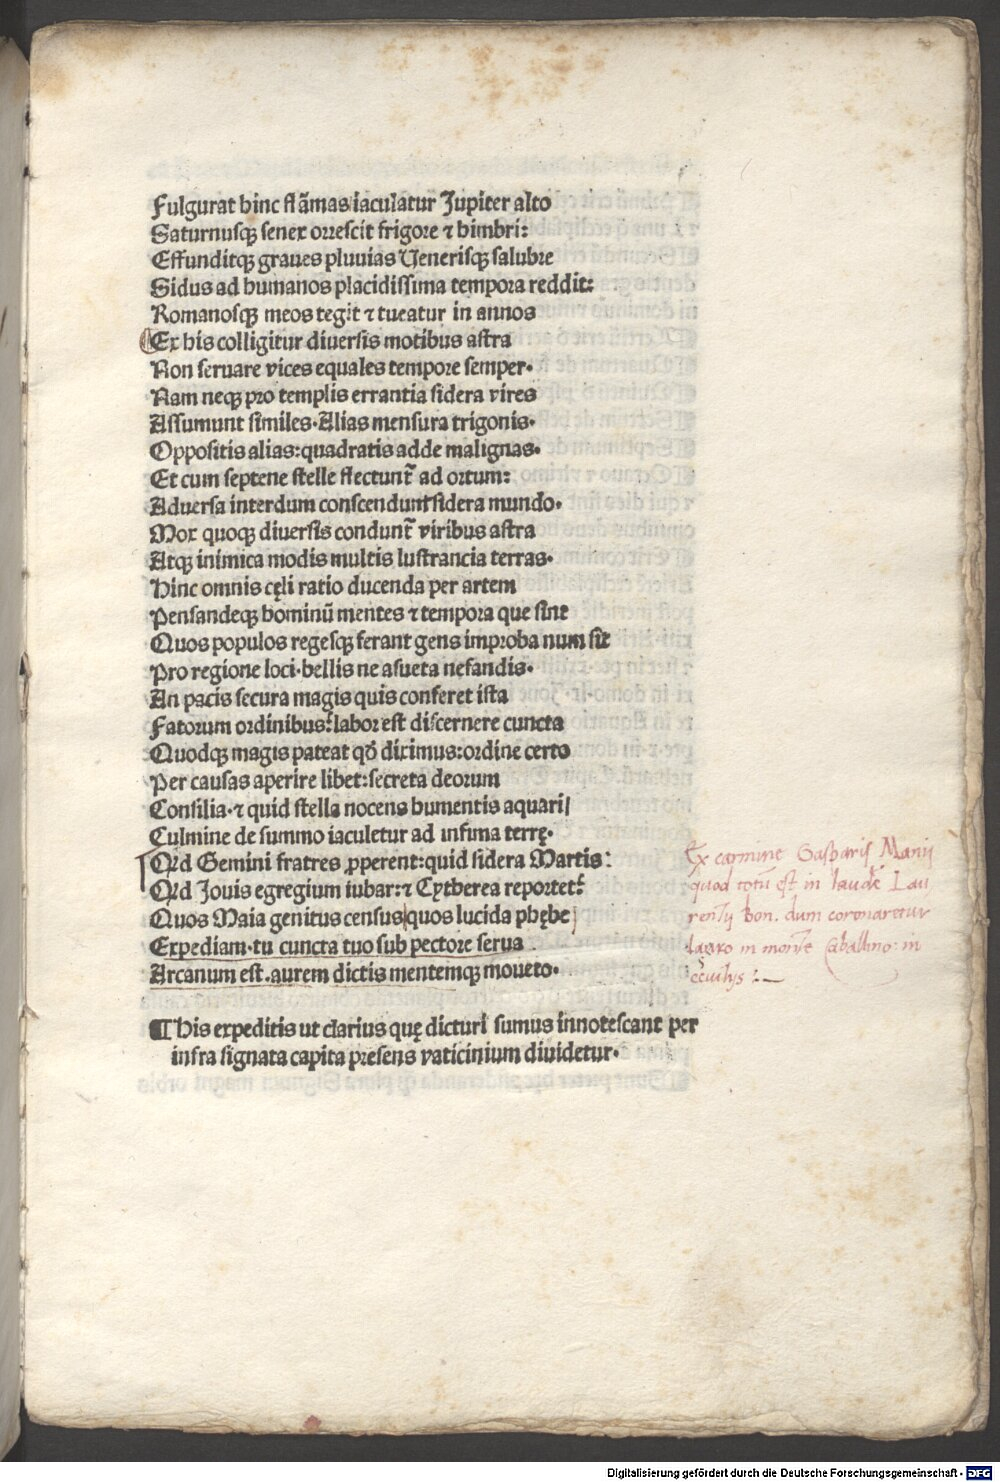 Fulgurat hinc flāmas iaculatur Jupiter alto
Saturnusqꝫ senex orrescit frigore ⁊ himbri:
Effunditqꝫ graues pluuias Uenerisqꝫ salubre
Sidus ad humanos placidissima tempora reddit:
Romanosqꝫ meos tegit ⁊ tueatur in annos
Ex his colligitur diuersis motibus astra
Non seruare vices equales tempore semper.
Nam neqꝫ pro templis errantia sidera vires
Assumunt similes. Alias mensura trigonis.
Oppositis alias: quadratis adde malignas.
Et cum septene stelle flectunt᷑ ad ortum:
Aduersa interdum conscendunt sidera mundo.
Mox quoqꝫ diuersis condunt᷑ viribus astra
Atqꝫ inimica modis multis lustrancia terras.
Hinc omnis cęli ratio ducenda per artem
Pensandeqꝫ hominū mentes ⁊ tempora que sint
Quos populos regesqꝫ ferant gens improba num sit
Pro regione loci. bellis ne asueta nefandis.
An pacis secura magis quis conferet ista
Fatorum ordinibus: labor est discernere cuncta
Quodqꝫ magis pateat qō diximus: ordine certo
Per causas aperire libet: secreta deorum
Consilia. ⁊ quid stella nocens humentis aquari/
Culmine de summo iaculetur ad infima terrę.
Qrd Gemini fratres ꝓperent: quid sidera Martis:
Qrd Jouis egregium iubar: ⁊ Cytherea reportet:
Quos Maia genitus census quos lucida phębe
Expediam. tu cuncta tuo sub pectore serua
Arcanum est. aurem dictis mentemqꝫ moueto.
¶ His expeditis ut clarius quę dicturi sumus innotescant per
infra signata capita presens vaticinium diuidetur.
Ex carmine Gasparis Manij
quod totū est in laudē Lau
rentij Bon. dum coronaretur
lauro in monte Caballino: in